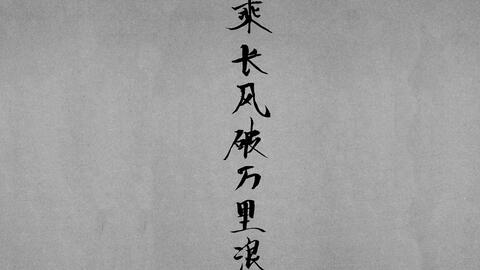 乘长风破万里浪